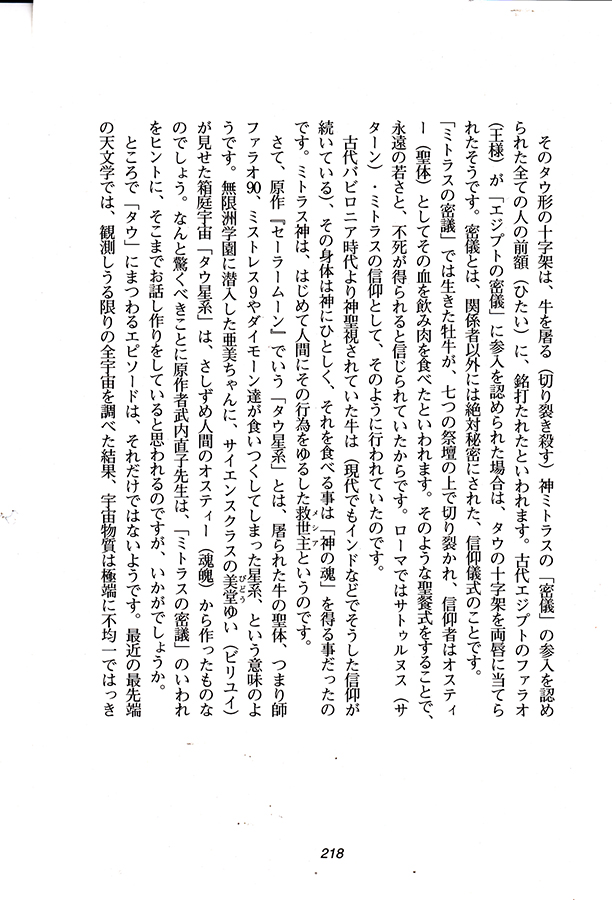 そのタウ形の十字架は、牛を屠る（切り裂き殺す）神ミトラスの「密儀」の参入を認め
られた全ての人の前額（ひたい）に、銘打たれたといわれます。古代エジプトのファラオ
（王様）が「エジプトの密儀」に参入を認められた場合は、タウの十字架を両唇に当てら
れたそうです。密儀とは、関係者以外には絶対秘密にされた、信仰儀式のことです。
「ミトラスの密議」では生きた牡牛が、七つの祭壇の上で切り裂かれ、信仰者はオスティ
ー（聖体）としてその血を飲み肉を食べたといわれます。そのような聖餐式をすることで、
永遠の若さと、不死が得られると信じられていたからです。ローマではサトゥルヌス（サ
ターン）・ミトラスの信仰として、そのように行われていたのです。
古代バビロニア時代より神聖視されていた牛は（現代でもインドなどでそうした信仰が
続いている）、その身体は神にひとしく、それを食べる事は「神の魂」を得る事だったの
です。ミトラス神は、はじめて人間にその行為をゆるした救世主メシアというのです。
さて、原作『セーラームーン』でいう「タウ星系」とは、屠られた牛の聖体、つまり師
ファラオ90、ミストレス9やダイモーン達が食いつくしてしまった星系、という意味のよ
うです。無限洲学園に潜入した亜美ちゃんに、サイエンスクラスの美堂びどうゆい（ビリユイ）
が見せた箱庭宇宙「タウ星系」は、さしずめ人間のオスティー（魂魄）から作ったものな
のでしょう。なんと驚くべきことに原作者武内直子先生は、「ミトラスの密議」のいわれ
をヒントに、そこまでお話し作りをしていると思われるのですが、いかがでしょうか。
ところで「タウ」にまつわるエピソードは、それだけではないようです。最近の最先端
の天文学では、観測しうる限りの全宇宙を調べた結果、宇宙物質は極端に不均一ではっき
218